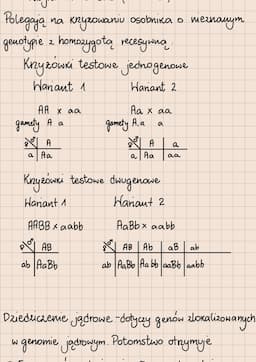 Polegają na krzyżowaniu osobnika o nieznanym
genotypie z homozygotą recesywną
Krzyżówki testowe jednogenowe
Wariant 1 Wariant 2
AA x aa Aa x aa
gamety A a gamety A,a a
♀ ♂ A ♀ ♂ A a
a Aa a Aa aa
Krzyżówki testowe dwugenowe
Wariant 1 Wariant 2
AABB x aabb AaBb x aabb
♀ ♂ AB ♀ ♂ AB Ab aB ab
ab AaBb ab AaBb Aabb aaBb aabb
Dziedziczenie jądrowe - dotyczy genów zlokalizowanych
w genomie jądrowym. Potomstwo otrzymuje